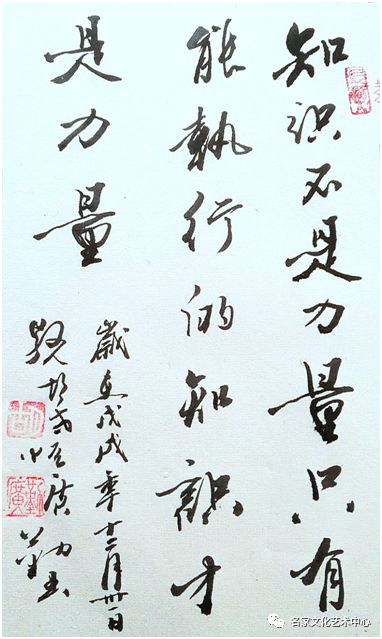 知识不是力量只有
能執行的知識才
是力量
歲在戊戌年十二月卅一日
勤书
名家文化艺术中心